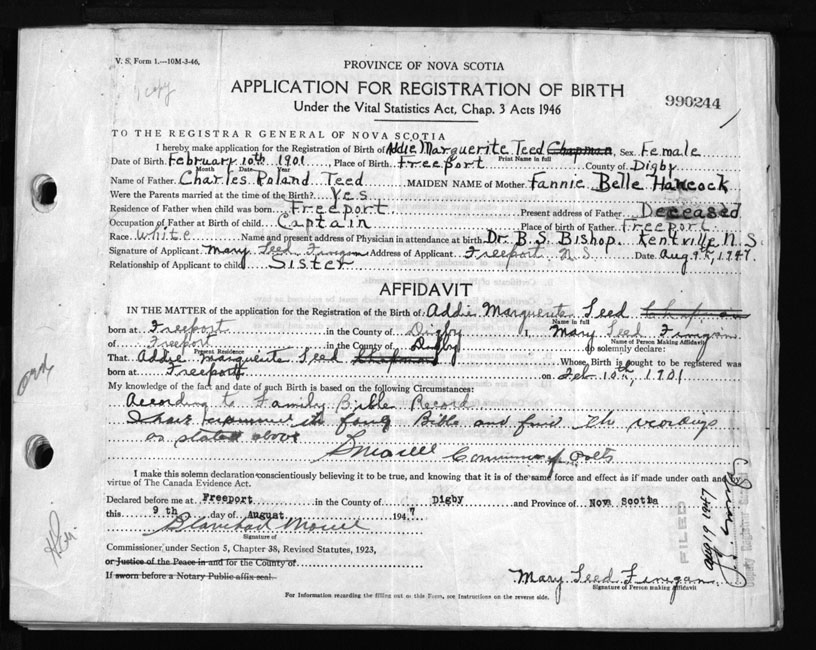 V. S. Form 1.—10M-3-46.
PROVINCE OF NOVA SCOTIA
APPLICATION FOR REGISTRATION OF BIRTH
Under the Vital Statistics Act, Chap. 3 Acts 1946
990244
TO THE REGISTRAR GENERAL OF NOVA SCOTIA
I hereby make application for the Registration of Birth of Addie Marguerite Teed Chapman, Sex Female
Print Name in full
Date of Birth February 10th 1901, Place of Birth Freeport County of Digby
Month Date Year
Name of Father Charles Roland Teed MAIDEN NAME of Mother Fannie Belle Hancock
Were the Parents married at the time of the Birth? Yes
Residence of Father when child was born Freeport Present address of Father Deceased
Occupation of Father at Birth of child Captain Place of birth of Father Freeport
Race White Name and present address of Physician in attendance at birth Dr. B. S. Bishop. Kentville N. S.
Signature of Applicant Mary Teed Finigan Address of Applicant Freeport N. S. Date Aug 9th, 1947.
Relationship of Applicant to child Sister
AFFIDAVIT
IN THE MATTER of the application for the Registration of the Birth of Addie Marguerite Teed Chapman
Name in full
born at Freeport in the County of Digby, Mary Teed Finigan
Name of Person Making Affidavit
of Freeport in the County of Digby do solemnly declare:
Present Residence
That Addie Marguerite Teed Chapman Whose Birth is sought to be registered was
born at Freeport on Feb 10th, 1901
My knowledge of the fact and date of such Birth is based on the following Circumstances:
According to Family Bible Record
I have examined the family Bible and find the recordings
as stated above
I make this solemn declaration conscientiously believing it to be true, and knowing that it is of the same force and effect as if made under oath and by
virtue of The Canada Evidence Act.
Declared before me at Freeport in the County of Digby and Province of Nova Scotia
this 9 th day of August 1947
Signature of
Commissioner under Section 5, Chapter 38, Revised Statutes, 1923,
or Justice of the Peace in and for the County of
If sworn before a Notary Public affix seal.
Mary Teed Finigan
Signature of Person making Affidavit
For Information regarding the filling out of this Form, see Instructions on the reverse side.
FILED
Aug 19 1947